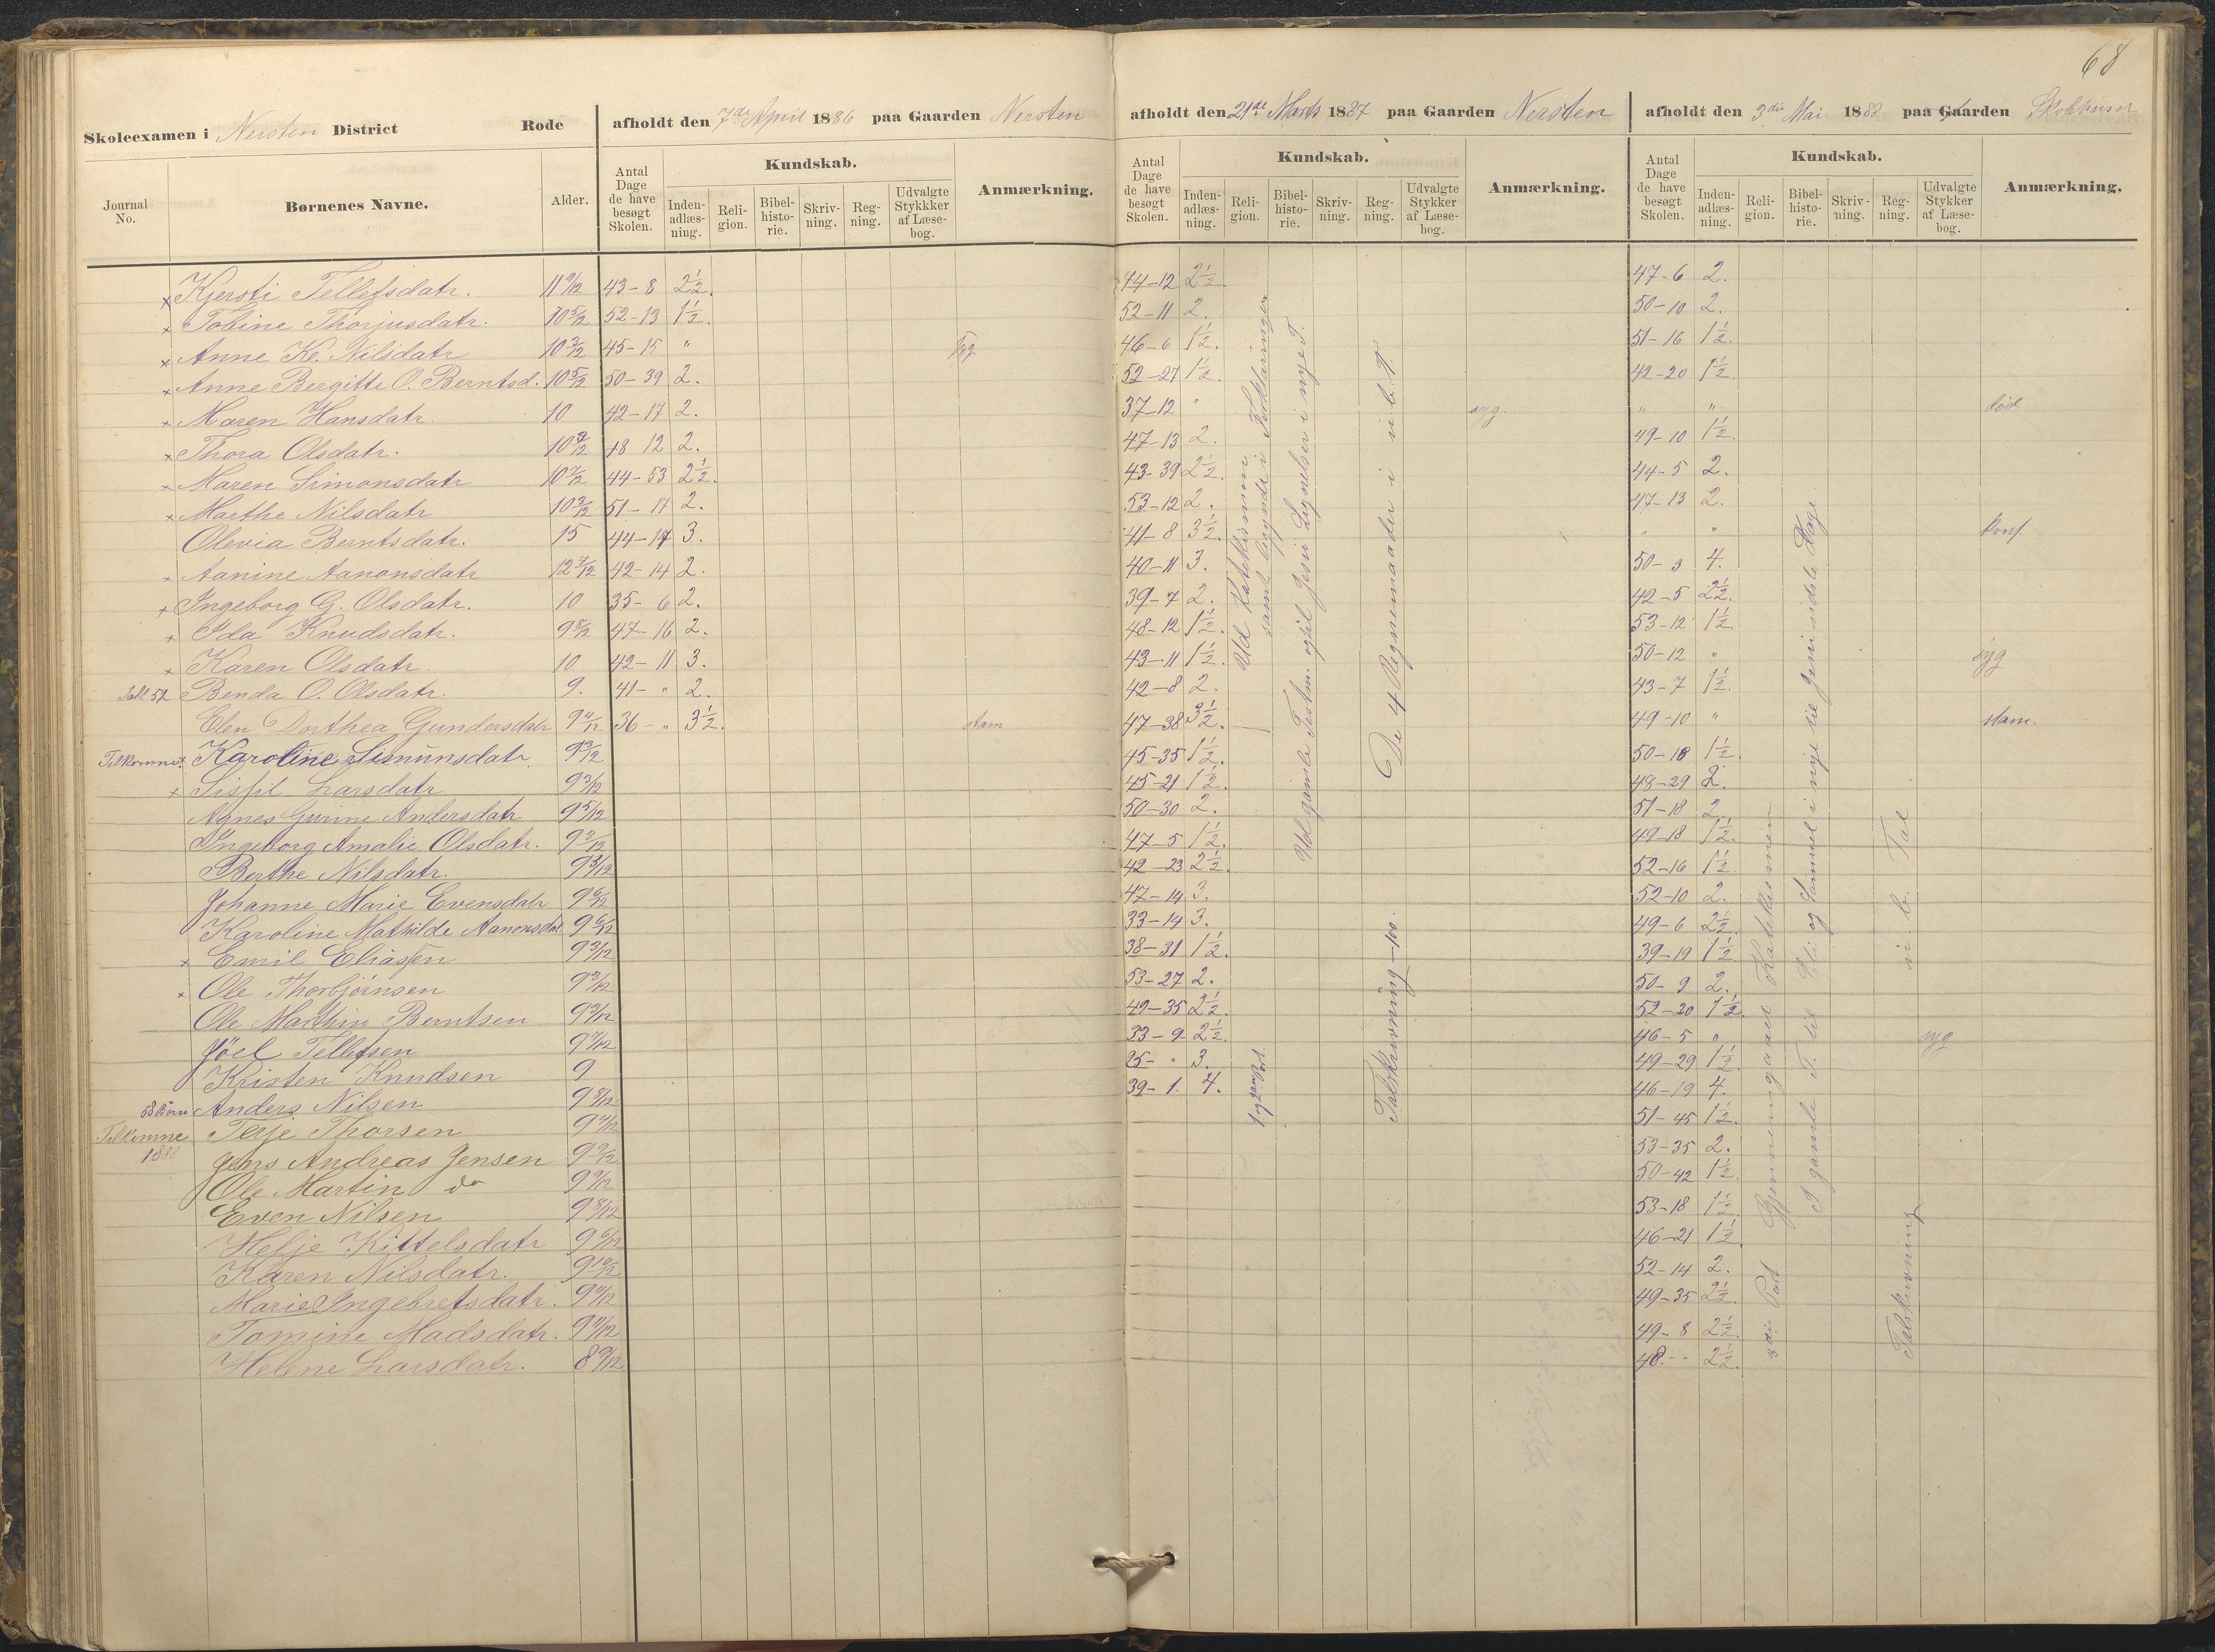 68
Skoleexamen i Nersten District Rode
afholdt den 7de April 1886 paa Gaarden Nersten
afholdt den 21de Marts 1887 paa Gaarden Nersten
afholdt den 3die Mai 1888 paa Gaarden Skolehuset
Journal No. Børnenes Navne. Alder. Antal Dage de have besøgt Skolen. Kundskab. Inden-adlæs-ning. Reli-gion. Bibel-histo-rie. Skriv-ning. Reg-ning. Udvalgte Stykkker af Læse-bog. Anmærkning.
Antal Dage de have besøgt Skolen. Kundskab. Inden-adlæs-ning. Reli-gion. Bibel-histo-rie. Skriv-ning. Reg-ning. Udvalgte Stykker af Læse-bog. Anmærkning.
Antal Dage de have besøgt Skolen. Kundskab. Inden-adlæs-ning. Reli-gion. Bibel-histo-rie. Skriv-ning. Reg-ning. Udvalgte Stykker af Læse-bog. Anmærkning.
x Kjersti Tellefsdatr. 11 9/12 43-8 2½. 44-12 2½. 47-6 2.
x Tobine Thorjusdatr. 10 5/12 52-13 1½. 52-11 2. 50-10 2.
x Anne Ke. Nilsdatr 10 3/12 45-15 " syg 46-6 1½. 51-16 1½.
x Anne Bergitte O. Berntsd. 10 5/12 50-39 2. 52-27 1½. 42-20 1½.
x Maren Hansdatr 10 42-17 2. 37-12 " syg. " " død
x Thora Olsdatr. 10 48 12 2. 47-13 2. 49-10 1½.
x Maren Simonsdatr 10 44-53 2½. 43-39 2½. 44-5 2.
x Marthe Nilsdatr 10 3/12 51-17 2. 53-12 2. 47-13 2.
Olevia Berntsdatr. 15 44-14 3. 41-8 3½. " " konf.
x Aanine Aanonsdatr 12 7/12 42-14 2. 40-11 3. 50-3 4.
x Ingeborg G. Olsdatr. 10 35-6 2. 39-7 2. 42-5 2½.
x Ida Knudsdatr. 9 8/12 47-16 2. 48-12 1½. 53-12 1½.
x Karen Olsdatr. 10 42-11 3. 43-11 1½. 50-12 " syg
Benda O. Olsdatr. 9. 41-" 2. 42-8 2. 43-7 1½.
Elen Dorthea Gundersdatr 9 36-" 3½. stam 47-38 3½. 49-10 " stam.
Tilkomne x Karoline Simunsdatr 9 45-35 1½. 50-18 1½.
x Sissil Larsdatr 9 3/12 45-21 1½. 48-29 2.
Agnes Gurine Andersdatr 9 5/12 50-30 2. 51-18 2.
Ingeborg Amalie Olsdatr. 9 47-5 1½. 49-18 1½.
Berthe Nilsdatr. 9 3/12 42-23 2½. 52-16 1½
Johanne Marie Evensdatr 9 6/12 47-14 3. 52-10 2.
Karoline Mathilde Aanonsdat 9 6/12 33-14 3. 49-6 2½.
x Emil Eliassen 9 3/12 38-31 1½. 39-19 1½
x Ole Thorbjörnsen 9 53-27 2. 50-9 2.
Ole Marthin Berntsen 9 49-35 2½. 52-20 1½.
Jöel Tellefsen 9 33-9 2½. 46-5 " syg
Kristen Knudsen 9 25-" 3. 49-29 1½.
58 Börn Anders Nilsen 9 8/12 39-1. 4. 46-19 4.
Tilkomne 1888 Terje Thorsen 9 51-45 1½.
Jens Andreas Jensen 9 53-35 2.
Ole Martin do 9 50-42 1½.
Even Nilsen 9 8/12 53-18 1½.
Helje Kittelsdatr 9 6/12 46-21 1½.
Karen Nilsdatr. 9 10/12 52-14 2.
Marie Ingebretsdatr. 9 11/12 49-35 2½.
Tomine Madsdatr. 9 11/12 49-8 2½.
Helene Larsdatr. 8 9/12 48-- 2½.
Ud Katekismen
samt begyndt i Forklaringen
1 og 2den Part
Ud gamle Testm. og til Jesu Lignelser i nye T.
De 4 Regnemaader i u. b. T.
Talskrivning - 100.
3die Part Gjennemgaaet Katekismen
I gamle T. til Eli og Samuel i nye til Jesu sidste Dage
Talskrivning u. b. Tal